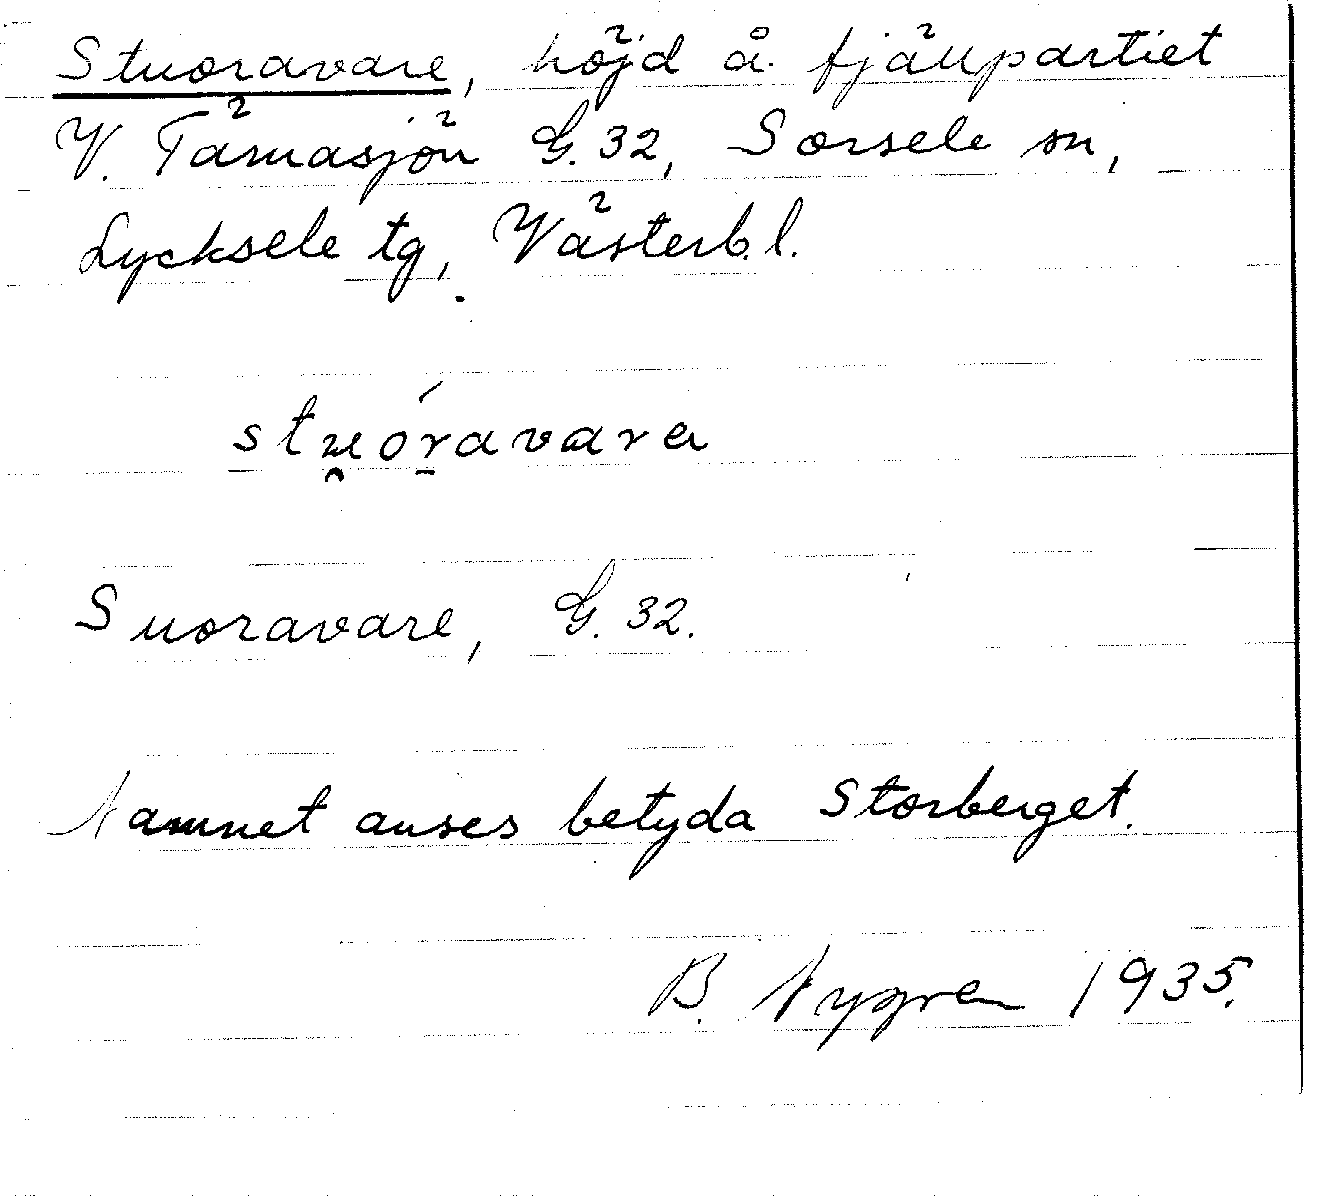 Stuoravare, höjd å fjällpartiet
V. Tärnasjön G. 32, Sorsele sn,
Lycksele tg, Västerb. l.
stu̯óravarɐ
Suoravare, G. 32.
Namnet anses betyda Storberget.
B. Nygren 1935.